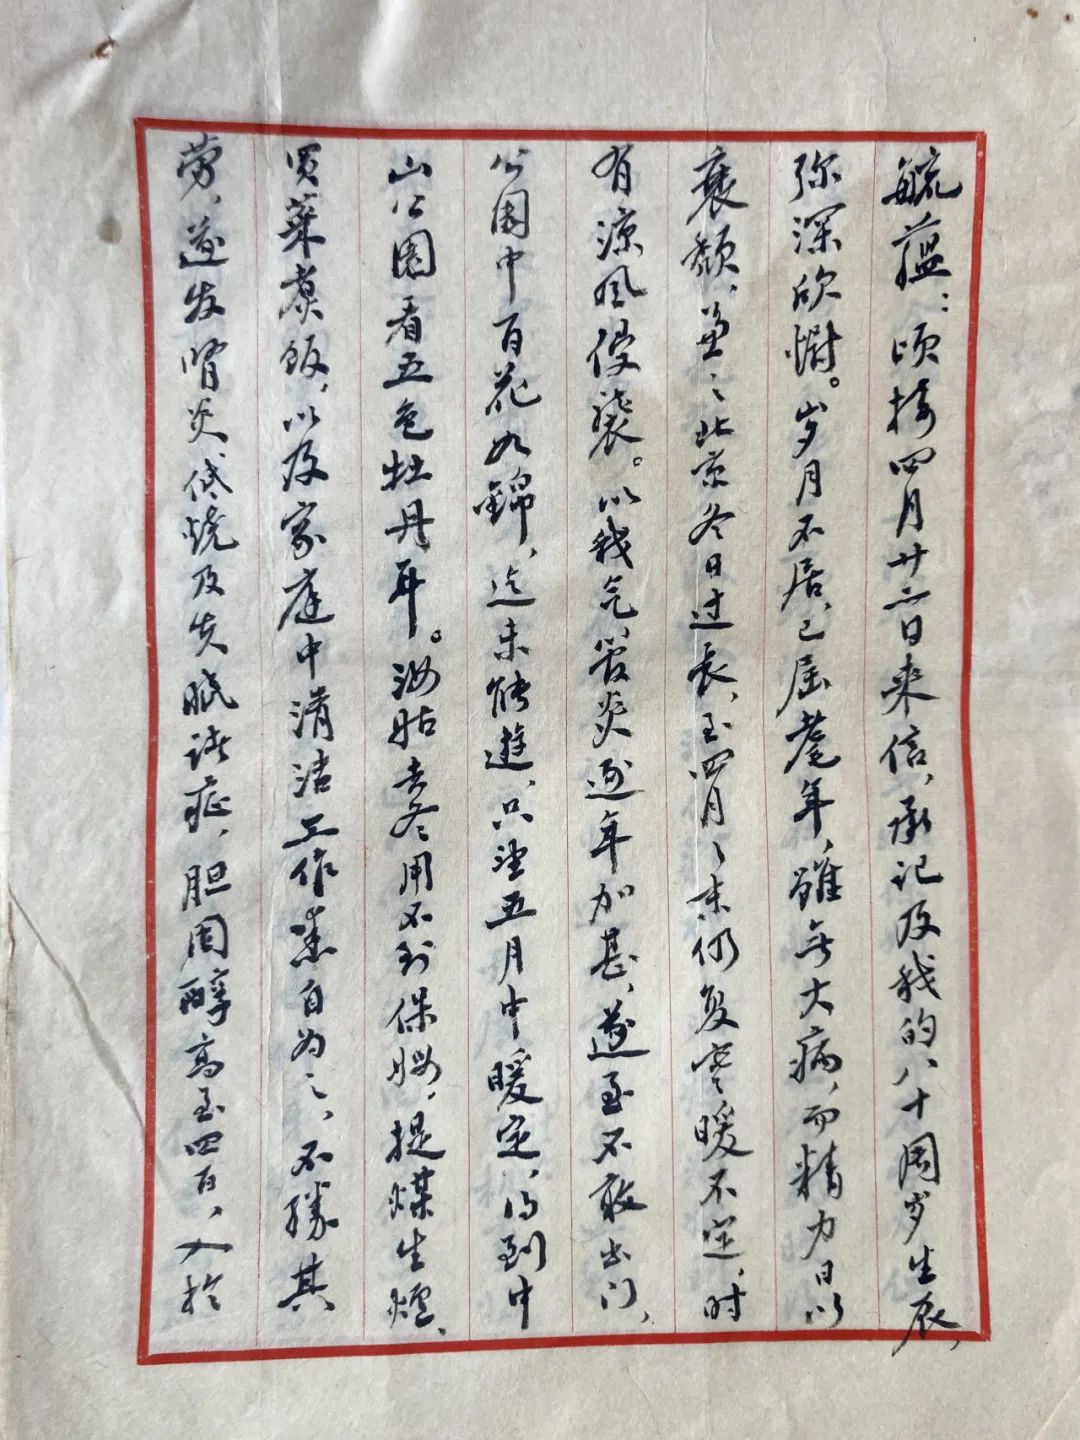 毓蕴：顷接四月廿二日来信，承记及我的八十周岁生辰，
弥深欣慰。岁月不居，已届耄年，虽无大病，而精力日以
衰颓，兼之北京冬日过长，至四月之末仍复寒暖不定，时
有凉风侵袭。以我气管炎逐年加甚，遂至不敢出门，
公园中百花如锦，迄未能游，只望五月中暖定，得到中
山公园看五色牡丹耳。汝姑去冬用不到保姆，提煤生炉、
买菜煮饭，以及家庭中清洁工作悉自为之，不胜其
劳，遂发肾炎、低烧及失眠诸症，胆固醇高至四百，入于